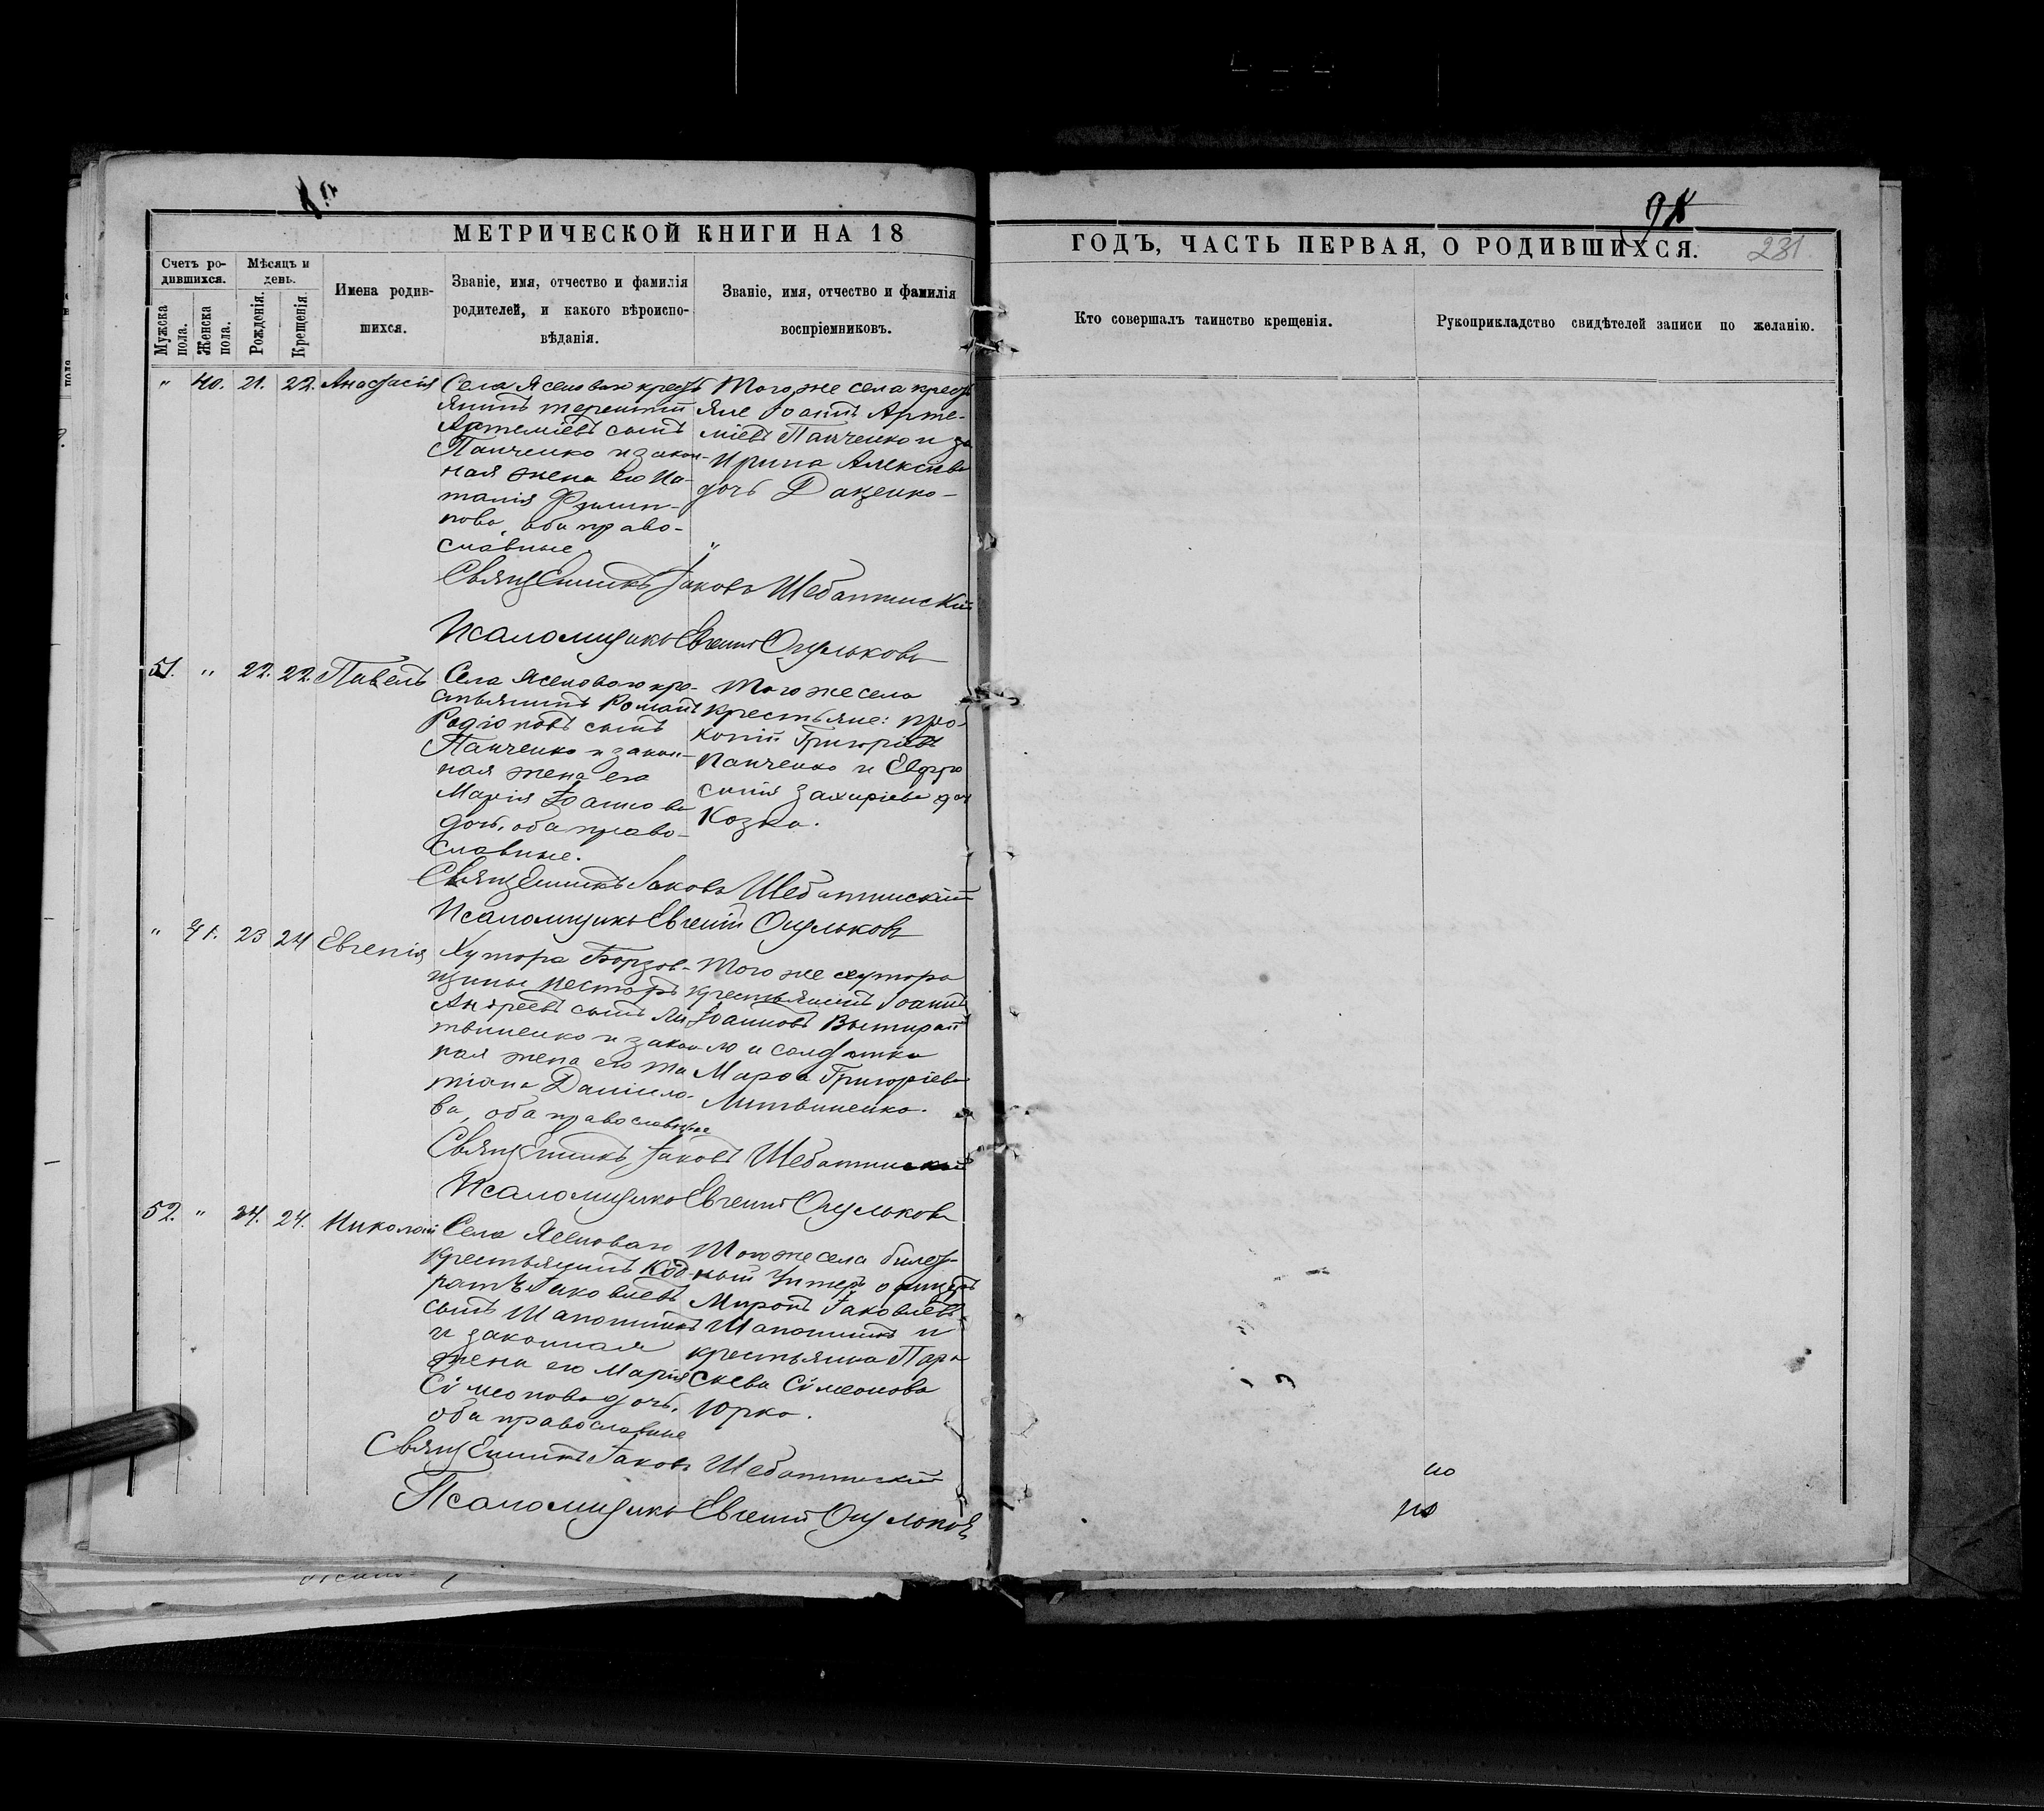 МЕТРИЧЕСКОЙ КНИГИ НА 18
ГОДЪ, ЧАСТЬ ПЕРВАЯ, О РОДИВШИХСЯ. 231.
Счетъ ро-
дившихся.
Мужска
пола.
Женска
пола.
Мѣсяцъ и
день.
Рожденія.
Крещенія.
Имена родив-
шихся.
Званіе, имя, отчество и фамилія
родителей, и какого вѣроиспо-
вѣданія.
Званіе, имя, отчество и фамилія
воспріемниковъ.
Кто совершалъ таинство крещенія.
Рукоприкладство свидѣтелей записи по желанію.
" 40. 21. 22. Анастасія
Села Ясеноваго крест
янинъ Терентій
Артеміевъ сынъ
Панченко и закон-
ная жена его На-
талія Филип-
пова, оба право-
славные.
Того же села крест
яне Іоаннъ Арте-
міевъ Панченко и
Ирина Алексіева
дочь Даценко
Священникъ Іаковъ Шебатинскій
Псаломщикъ Евгеній Ольковъ
51. " 22. 22. Павелъ
Села Ясеноваго кре-
стьянинъ Романъ
Родіоновъ сынъ
Панченко и закон-
ная жена его
Марія Іоаннова
дочь, оба право-
славные.
Того же села
крестьяне: Про-
копій Григоріевъ
Панченко и Евфро
синія Захаріева доч
Козка.
Священникъ Іаковъ Шебатинскій
Псаломщикъ Евгеній
" 41. 23 24 Евгенія
Хутора Борзов-
щины Несторъ
Андреевъ сынъ Ли
твиненко и закон
ная жена его Та
тіана Даніило-
ва, оба православные
Того же хутора
крестьянинъ Іоаннъ
Іоанновъ
ло и солдатка
Марфа Григоріева
Литвиненко.
Священникъ Іаковъ Шебатинскій
Псаломщикъ Евгеній
52. " 24. 24. Николай
Села Ясеноваго
крестьянинъ Код-
ратъ Іаковлевъ
сынъ Шапошникъ
и законная
жена его Марія
Сімеонова дочь,
оба православные
Того же села билет-
ный Унтеръ офицеръ
Миронъ Іаковлевъ
Шапошникъ и
крестьянка Пара
скева Сімеонова
Юрко.
Священникъ Іаковъ Шебатинскій
Псаломщикъ Евгеній